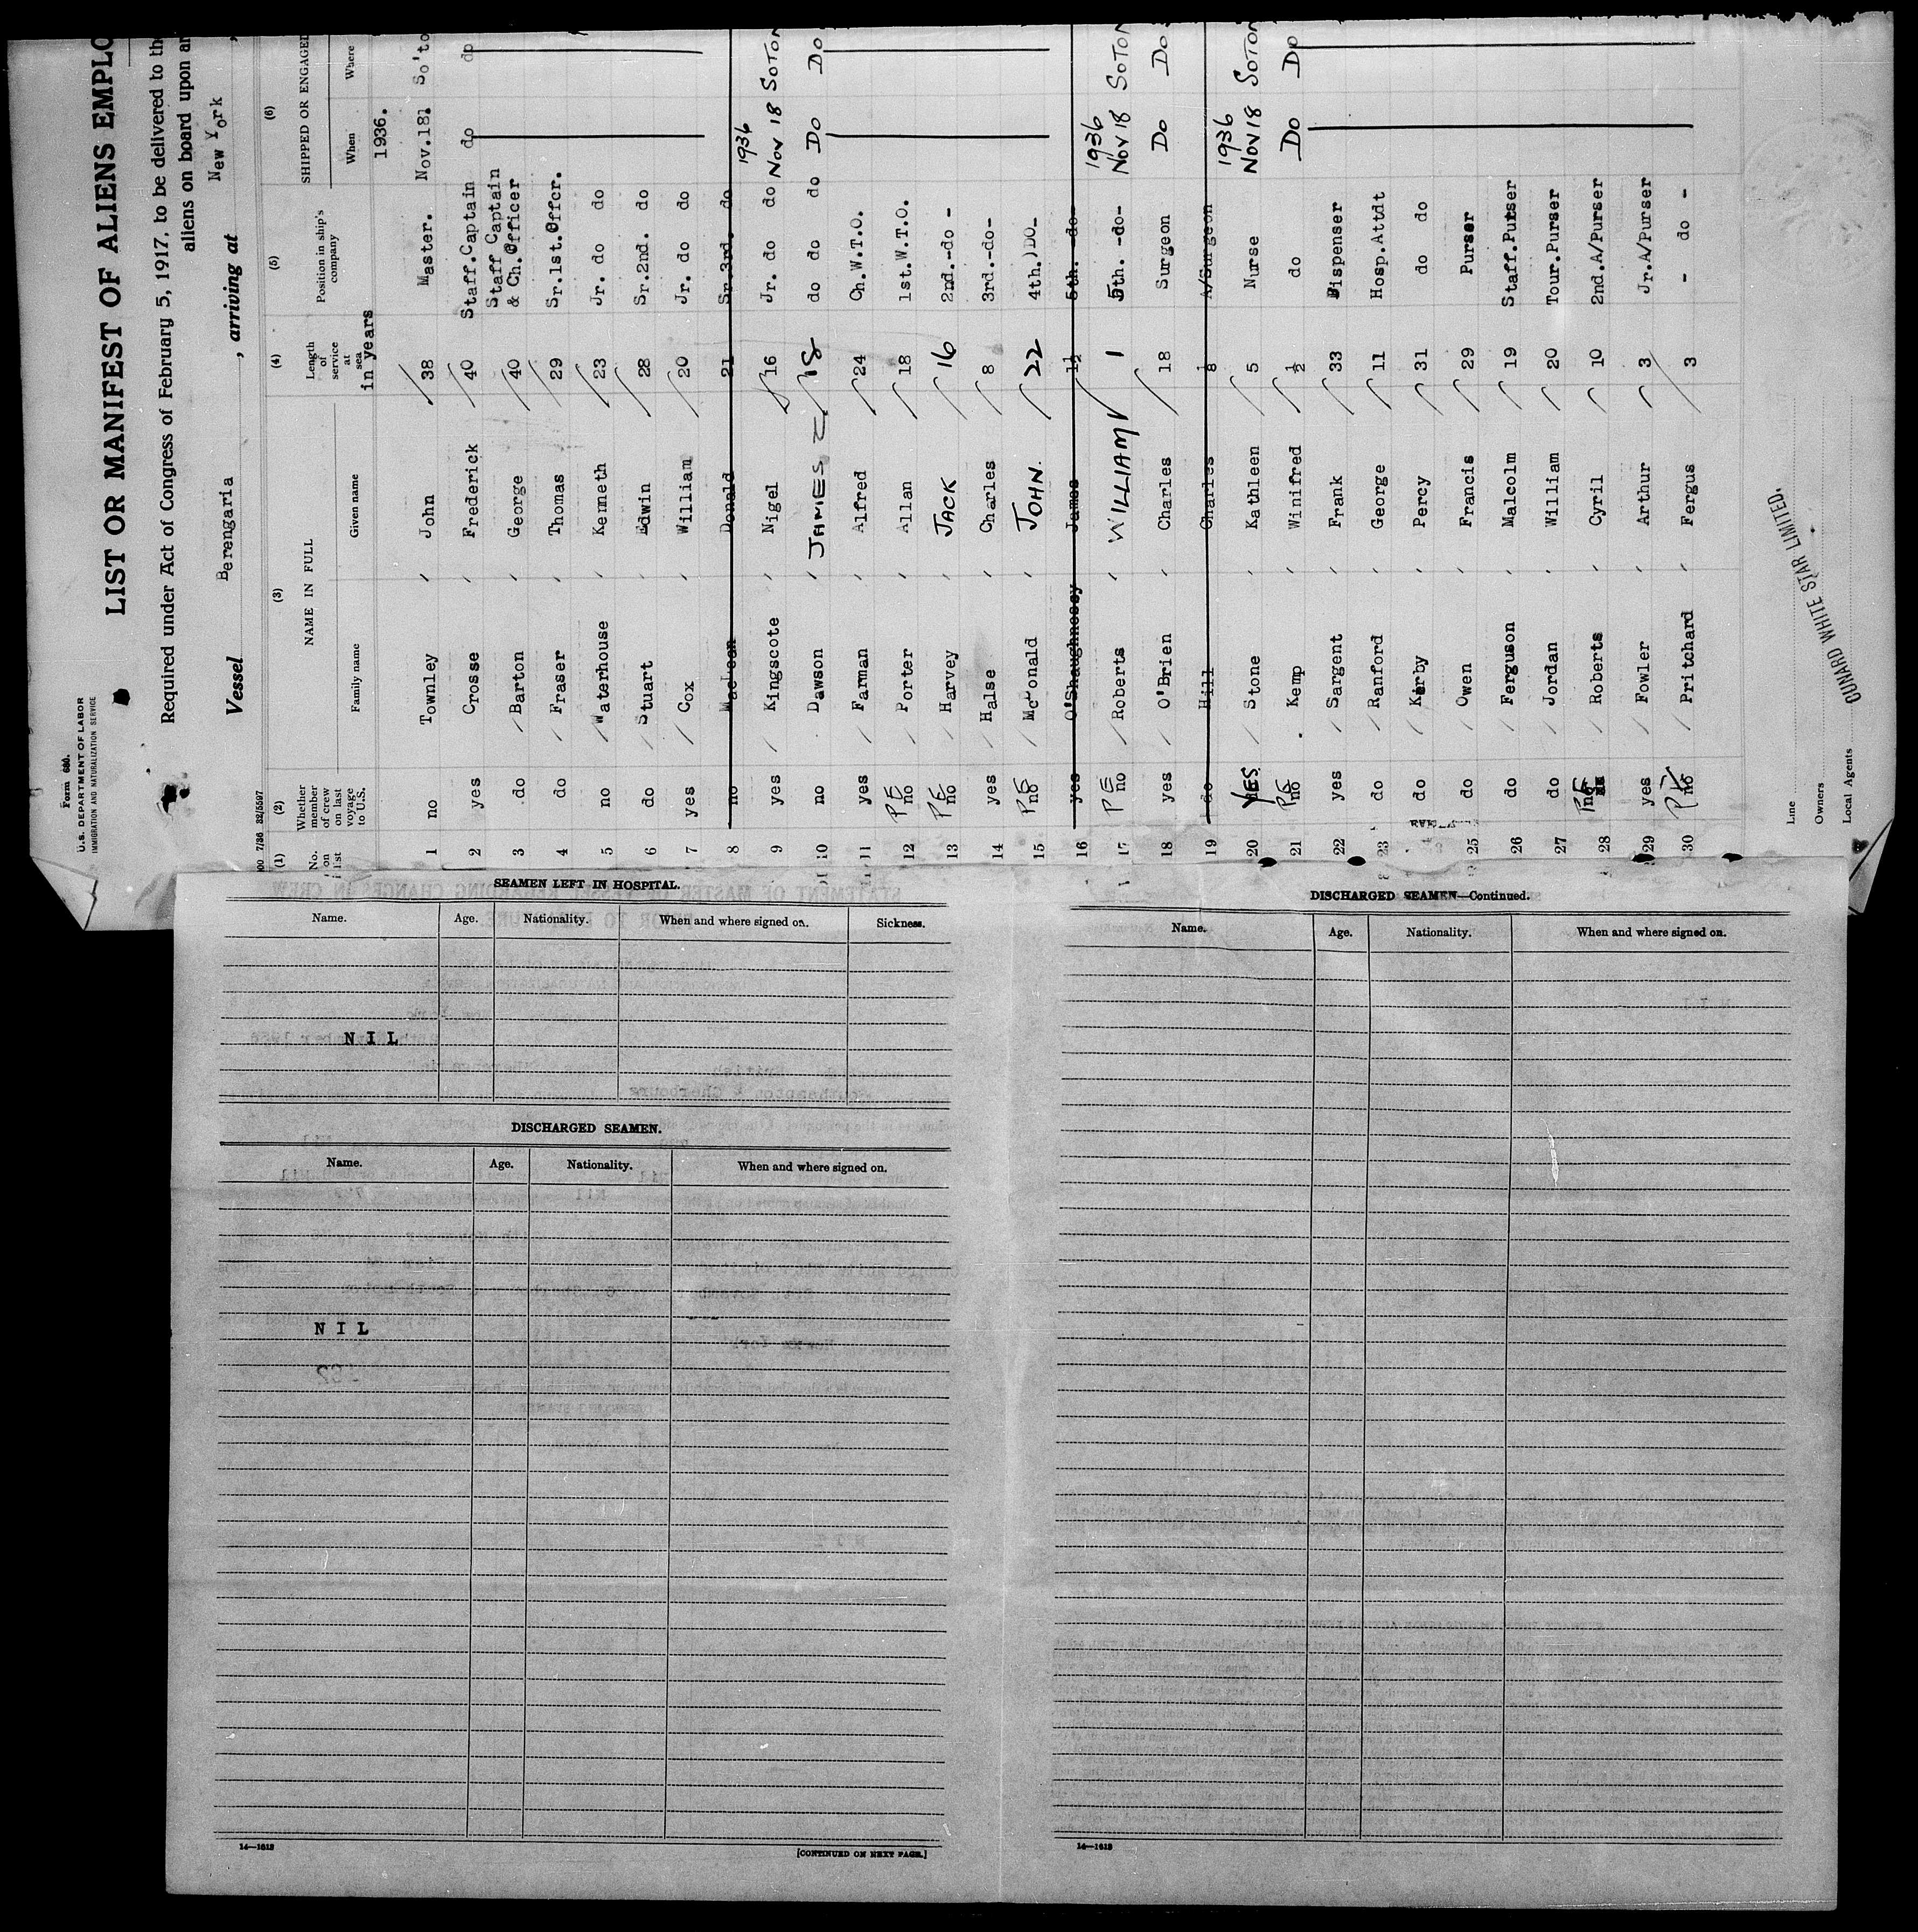 Form 680.
U.S. DEPARTMENT OF LABOR
IMMIGRATION AND NATURALIZATION SERVICE
LIST OR MANIFEST OF ALIENS EMPLO
Required under Act of Congress of February 5, 1917, to be delivered to th
aliens on board upon ar
Vessel Berengaria , arriving at New York ,
7/36 32/5597
(1) (2) (3) (4) (5) (6)
No. on list Whether member of crew on last voyage to U.S. NAME IN FULL Family name Given name Length of service at sea in years Position in ship's company SHIPPED OR ENGAGED When Where
1936.
1 no Townley John 38 Master. Nov.18. So'to
2 yes Crosse Frederick 40 Staff.Captain do do
3 do Barton George 40 Staff Captain & Ch.Officer
4 do Fraser Thomas 29 Sr.1st.Offcr.
5 no Waterhouse Kenneth 23 Jr. do do
6 do Stuart Edwin 28 Sr.2nd. do
7 yes Cox William 20 Jr. do do
8 no MacLean Donald 21 Sr.3rd. do
9 yes Kingscote Nigel 16 Jr. do do 1936 Nov 18 SOTON
10 no Dawson JAMES 18 do do do Do Do
11 yes Farman Alfred 24 Ch.W.T.O.
12 PE no Porter Allan 18 1st.W.T.O.
13 PE no Harvey JACK 16 2nd.-do-
14 yes Halse Charles 8 3rd.-do-
15 PE no McDonald JOHN. 22 4th.)DO-
16 yes O'Shaughnessy James 1½ 5th. -do-
17 PE no Roberts WILLIAM 1 5th. -do- 1936 Nov 18 SOTON
18 yes O'Brien Charles 18 Surgeon Do Do
19 do Hill Charles ⅛ A/Surgeon
20 YES Stone Kathleen 5 Nurse 1936 Nov 18 SOTON
21 PE no Kemp Winifred ½ do Do Do
22 yes Sargent Frank 33 Dispenser
23 do Ranford George 11 Hosp.Attdt
do Kerby Percy 31 do do
25 do Owen Francis 29 Purser
26 do Ferguson Malcolm 19 Staff.Purser
27 do Jordan William 20 Tour.Purser
28 PE Roberts Cyril 10 2nd.A/Purser
29 yes Fowler Arthur 3 Jr.A/Purser
30 no Pritchard Fergus 3 - do -
Line
Owners
Local Agents CUNARD WHITE STAR LIMITED.
SEAMEN LEFT IN HOSPITAL.
Name. Age. Nationality. When and where signed on. Sickness.
NIL
DISCHARGED SEAMEN.
Name. Age. Nationality. When and where signed on.
NIL
14—1613
[CONTINUED ON NEXT PAGE.]
DISCHARGED SEAMEN—Continued.
Name. Age. Nationality. When and where signed on.
14—1613